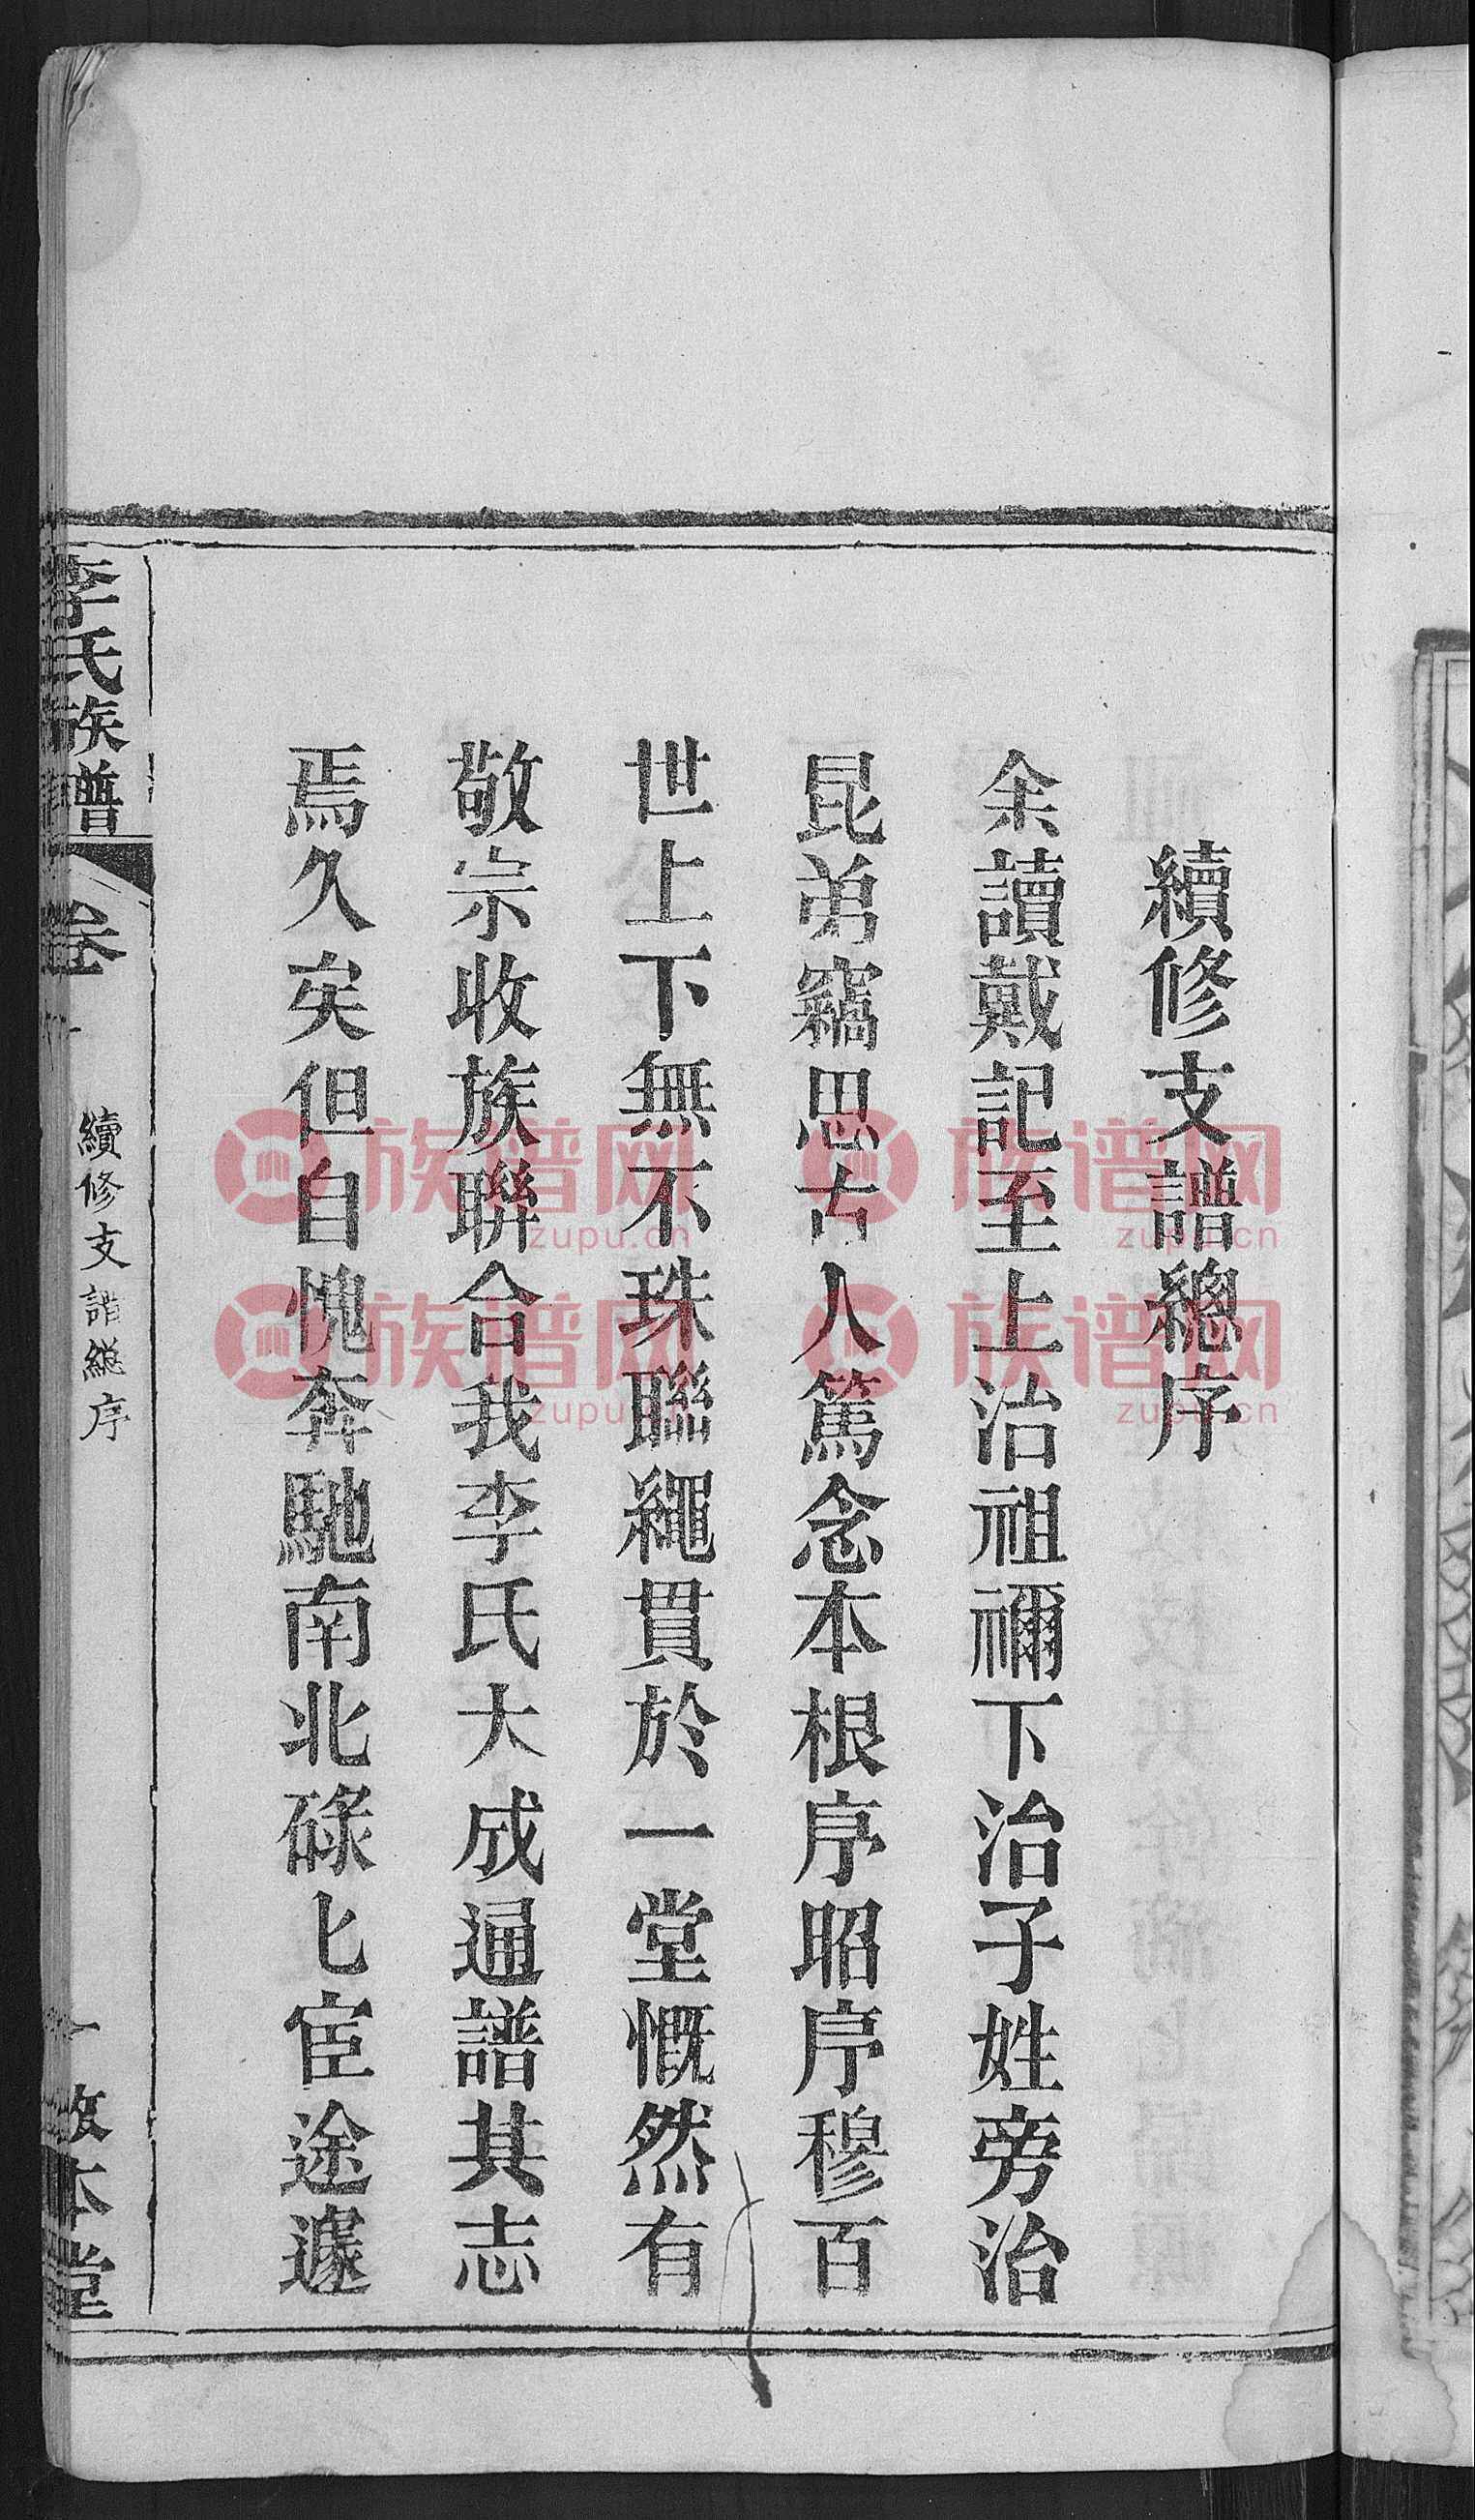 續修支譜總序
余讀戴記至上治祖禰下治子姓旁治
昆弟竊思古人篤念本根序昭序穆百
世上下無不珠聯繩貫於一堂慨然有
敬宗收族聯合我李氏大成通譜其志
焉久矣但自愧奔馳南北碌匕宦途遽
李氏族譜
卷
續修支譜総序
敦本堂
族谱网
zupu.cn
族谱网
zupu.cn
族谱网
zupu.cn
族谱网
zupu.cn